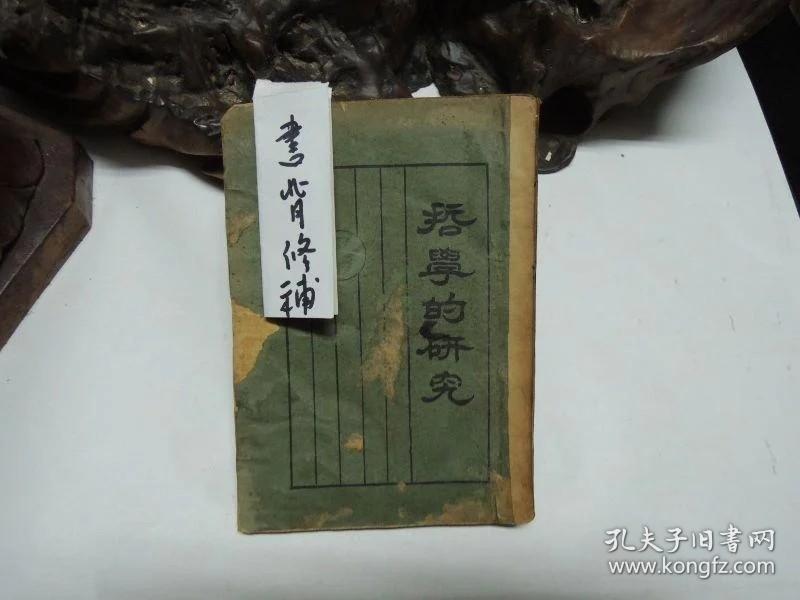 書背修補
哲學的研究
孔夫子旧书网
www.kongfz.com